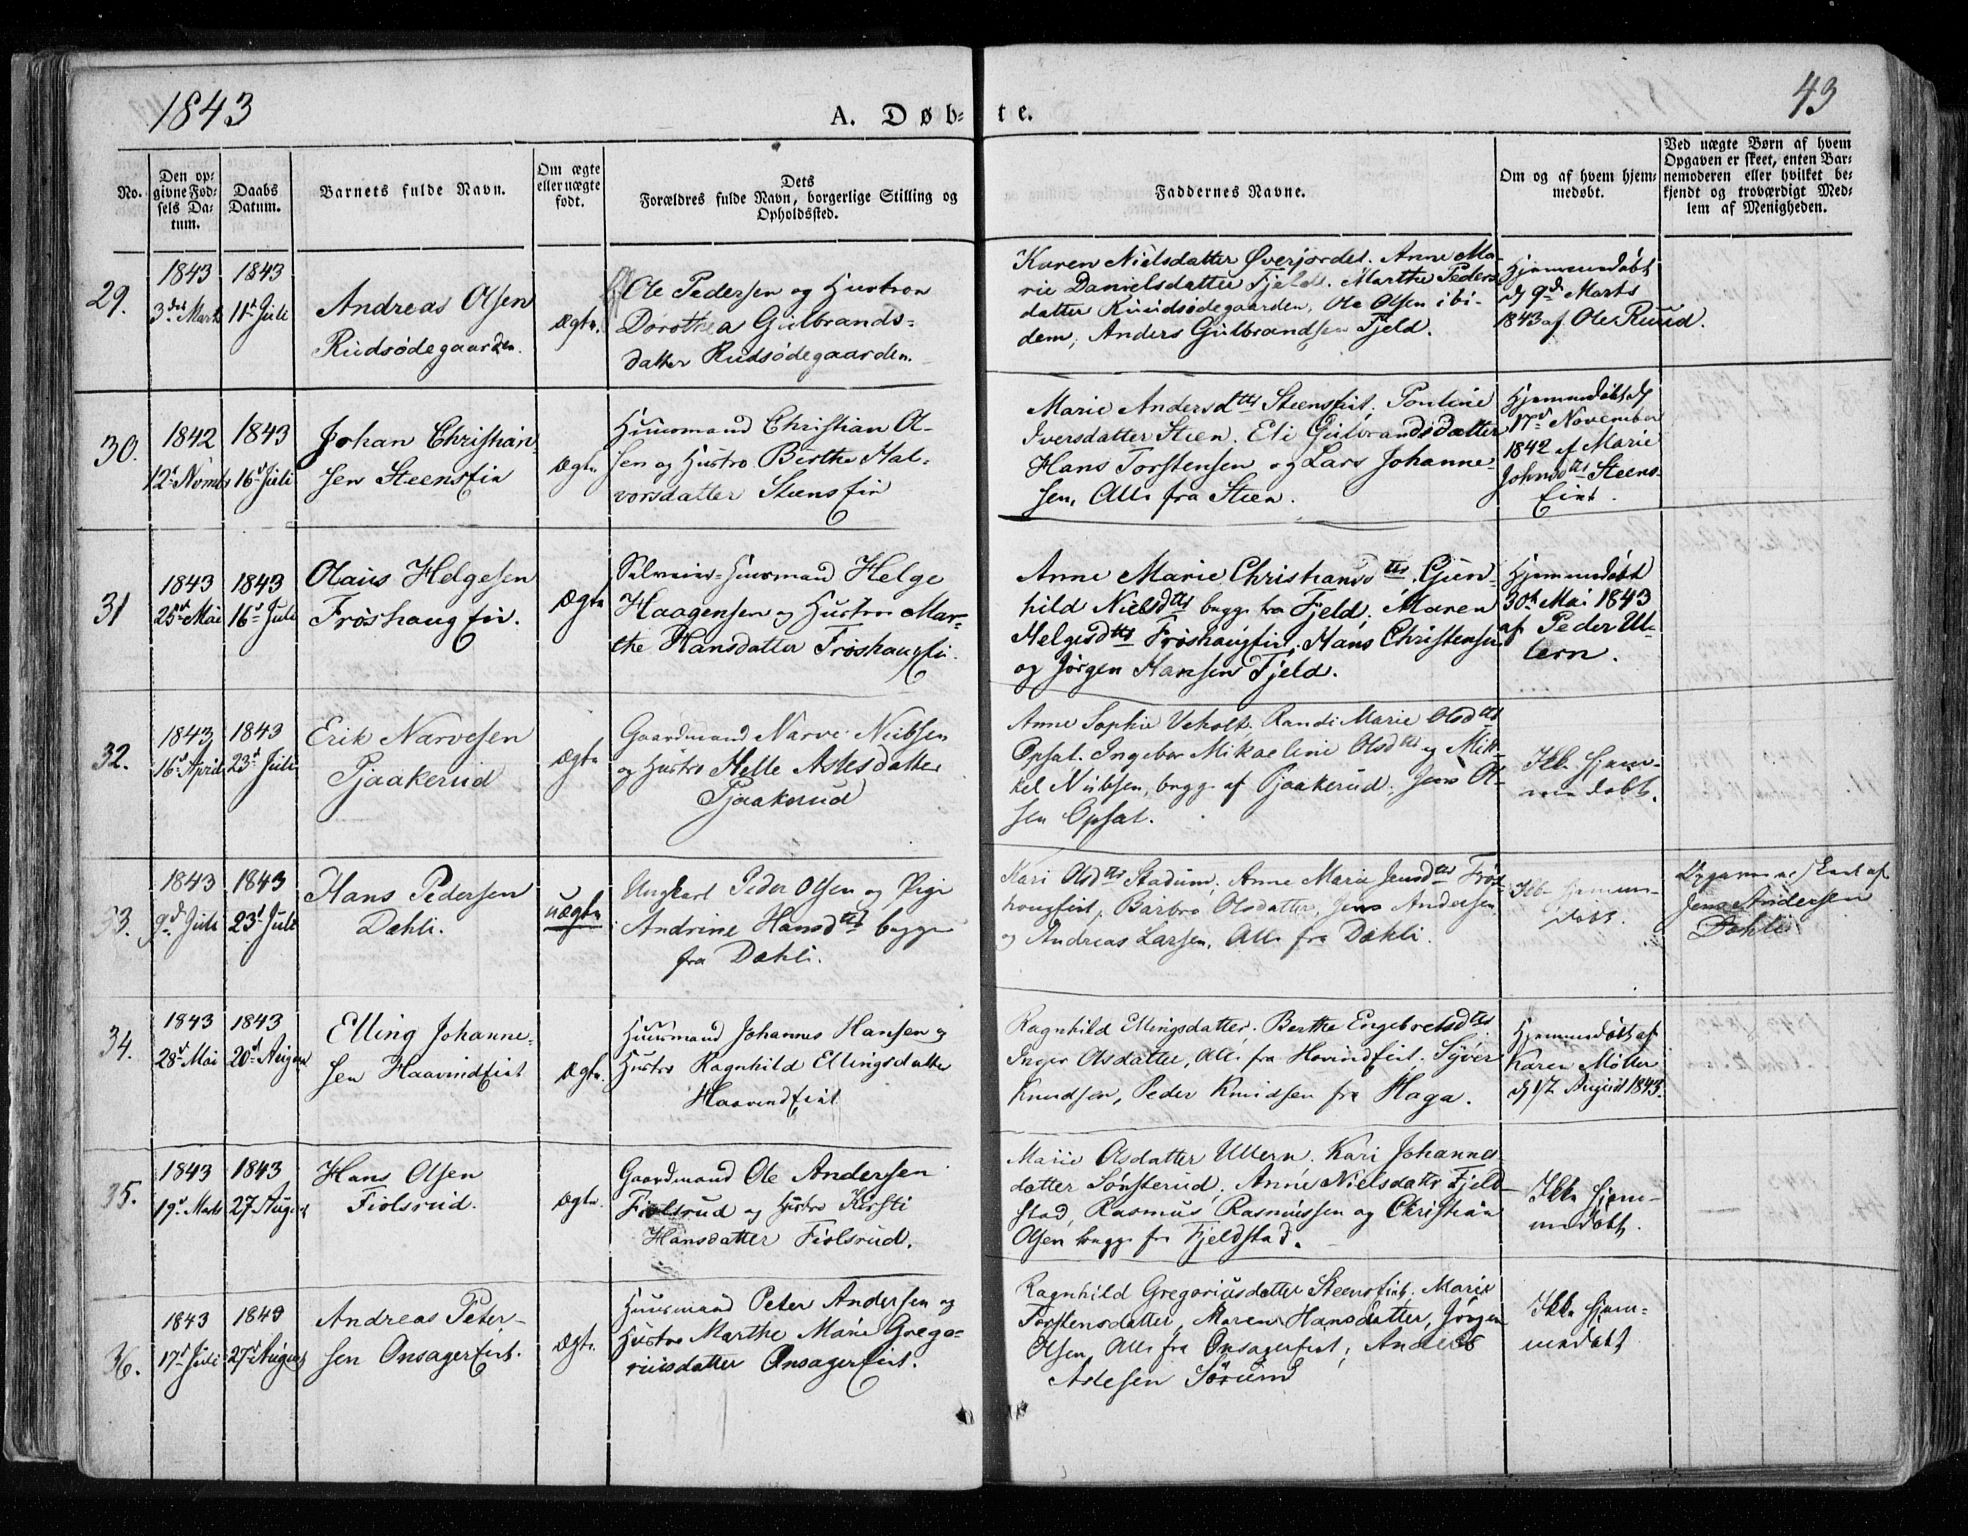 1843
A. Døb-
te.
43
No.
Den op-
givne Fød-
sels Da-
tum.
Daabs
Datum.
Barnets fulde Navn.
Om ægte
eller uægte
født.
Dets
Forældres fulde Navn, borgerlige Stilling og
Opholdssted.
Faddernes Navne.
Om og af hvem hjem-
medøbt.
Ved uægte Børn af hvem
Opgaven er skeet, enten Bar-
nemoderen eller hvilket be-
kjendt og troværdigt Med-
lem af Menigheden.
29.
1843
3die Marts
1843
11te Juli
Andreas Olsen
Rudsødegaarden.
Ægte.
Ole Pedersen og Hustron
Dorothea Gulbrands-
datter Rudsødegaarden.
Karen Nielsdatter Øverjordet. Anne Ma-
rie Danielsdatter Fjeld. Marthe Peders-
datter Ruudsødegaarden, Ole Olsen ibi-
dem, Anders Gulbrandsen Fjeld.
Hjemmedøbt
d 9de Marts
1843 af Ole Ruud.
30.
1842
12te Novmb
1843
16de Juli
Johan Christian-
sen Steensfin
Ægte.
Huusmand Christian Ol-
sen og Hustro Berthe Hal-
vorsdatter Steensfin
Marie Andersdtts Steensfint, Pouline
Iversdatter Steen. Eli Gulbrandsdatter
Hans Torstensen og Lars Johanne-
sen, Alle fra Steen.
Hjemmedøbt d
17de November
1842 af Marie
Johnsdtts Steens-
fint.
31
1843
25de Mai
1843
16de Juli
Olaus Helgesen
Frøshaugfin.
Ægte
Selveier-Huusmand Helge
Haagensen og Hustroe Mar-
the Hansdatter Frøshaugfin.
Anne Marie Christiansdtts. Gun-
hild Nielsdtts begge fra Fjeld, Maren
Helgesdtts Frøshaugfint, Hans Christensen
og Jørgen Hansen Fjeld.
Hjemmedøbt
30te Mai 1843
af Peder Ul-
lern.
32.
1843
16de April
1843
23de Juli
Erik Narvesen
Pjaakerud
Ægte
Gaardmand Narve Nielsen
og Hustro Helle Aslesdatter
Pjaakerud
Anne Sophie Veholt, Randi Marie Olsdtts
Opsat. Ingebor Mikaeline Olsdtts og Mik-
kel Nielsen, begge af Pjaakerud, Jens Ol-
sen Opsat.
Ikke Hjem-
medøbt.
33.
1843
9de Juli
1843
23de Juli
Hans Pedersen
Dæhli.
uægte
Ungkarl Peder Olsen og Pige
Andrine Hansdtt begge
fra Dæhli.
Kari Olsdtts Stadum, Anne Marie Jensdtts Frøs-
hougfint, Barbro Olsdatter, Jens Andersen
og Andreas Larsen, Alle fra Dæhli.
Ikke Hjemme-
døbt.
Opgaven er skeet af
Jens Andersen
Dæhli
34.
1843
28de Mai
1843
20de August
Elling Johanne-
sen Haavindfint
Ægte.
Huusmand Johannes Hansen og
Hustro Ragnhild Ellingsdatter
Haavindfint
Ragnhild Ellingsdatter, Berthe Engebretsdtts
Inger Olsdatter, Alle fra Hovindfint. Syver
Knudsen, Peder Knudsen fra Haga.
Hjemmedøbt af
Karen Møller
d 17 August 1843.
35.
1843
19de Marts
1843
27 August
Hans Olsen
Fiolsrud.
Ægte.
Gaardmand Ole Andersen
Fiolsrud og Hustro Kirsti
Hansdatter Fiolsrud.
Marie Olsdatter Ullern. Kari Johannes-
datter Sønsterud, Anne Nielsdatter Fjeld-
stad, Rasmus Rasmussen og Christian
Olsen begge fra Fjeldstad.
Ikke Hjem-
medøbt.
36.
1843
17de Juli
1843
27de August
Andreas Peter-
sen Onsagerfint.
Ægte.
Huusmand Peter Andersen og
Hustro Marthe Marie Grego-
riusdatter Onsagerfint.
Ragnhild Gregoriusdatter Steensfint. Marie
Torstensdatter, Maren Hansdatter, Jørgen
Olsen, Alle fra Onsagerfint, Anders
Aslesen Sørum
Ikke Hjem-
medøbt